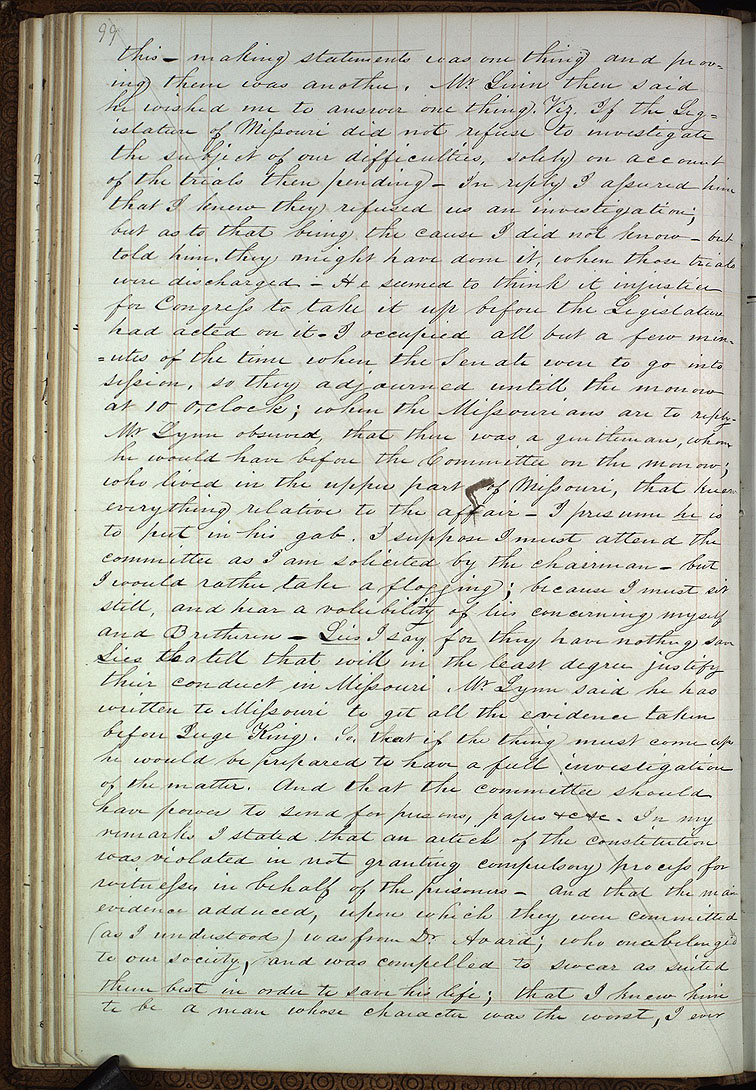 99
this – making statements was one thing and prov=
ing them was another. Mr Linn then said
he wished me to answer one thing. Viz. If the Leg=
islature of Missouri did not refuse to investigate
the subject of our difficulties, solely on account
of the trials then pending – In reply I assured him
that I knew they refused us an investigation;
but as to that being the cause I did not know – but
told him, they might have done it, when those trials
were discharged – He seemed to think it injustice
for Congress to take it up before the Legislature
had acted on it – I occupied all but a few min-
=utes of the time when the Senate were to go into
session, so they adjourned untell the morrow
at 10 O,clock; when the Missourians are to reply-
Mr Lynn observed, that there was a gentleman, whom
he would have before the Committee on the morrow;
who lived in the upper part of Missouri, that knew
everything relative to the affair – I presume he is
to put in his gab. I suppose I must attend the
committee as I am solicited by the chairman – but
I would rather take a flogging; because I must sit
still, and hear a volubility of lies concerning myself
and Bretheren – Lies I say for they have nothing save
Lies to tell that will in the least degree justify
their conduct in Missouri. Mr Lynn said he has
written to Missouri to get all the evidence taken
before Juge King. So, that if the thing must come up
he would be prepared to have a full investigation
of the matter. And that the committee should
have power to send for persons, papers &c &c. In my
remarks I stated that an artick of the constitution
was violated in not granting compulsory process for
witnesses in behalf of the prisoners – and that the main
evidence adduced, upon which they were committed
(as I understood) was from Dr Avard; who once belonged
to our society, and was compelled to swear as suited
them best in order to save his life; that I knew him
to be a man whose character was the worst, I ever